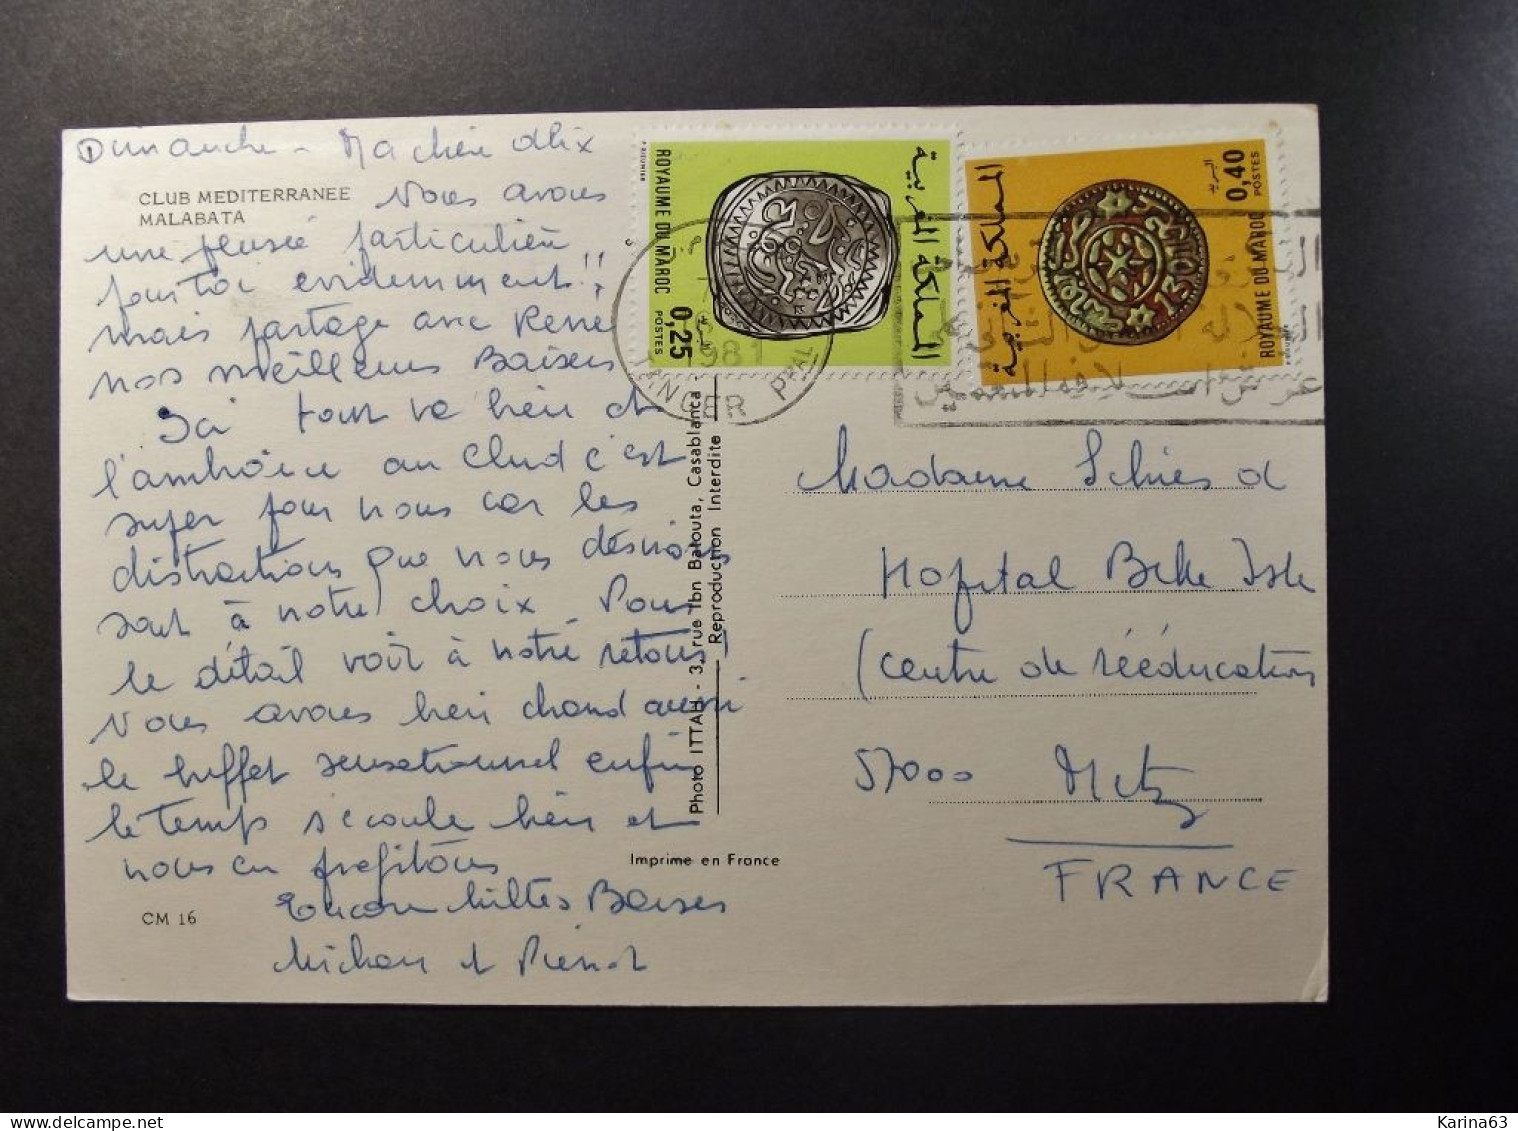 Dimanche - Ma chère Alix
CLUB MEDITERRANEE
MALABATA
Nous avons
une pensée particulière
pour toi évidemment!!
mais partage avec René
nos meilleurs Baisers
Ici tout va bien et
l'ambiance au Club c'est
super pour nous car les
distractions que nous désirons
sont à notre choix. Pour
le détail voir à notre retour!
Nous avons bien chaud aussi
le buffet sensationnel enfin
le temps s'écoule bien et
nous en profitons
Encore milles Baisers
et Pierrot
CM 16
Photo ITTAH - 3, rue Ibn Batouta, Casablanca
Reproduction Interdite
Imprime en France
ROYAUME DU MAROC
0,25
POSTES
المملكة المغربية
المملكة المغربية
البريد
0,40
POSTES
ROYAUME DU MAROC
1981
TANGER PPAL
Madame
Hopital Belle Isle
(Centre de rééducation
57000 Metz
FRANCE
Karina63